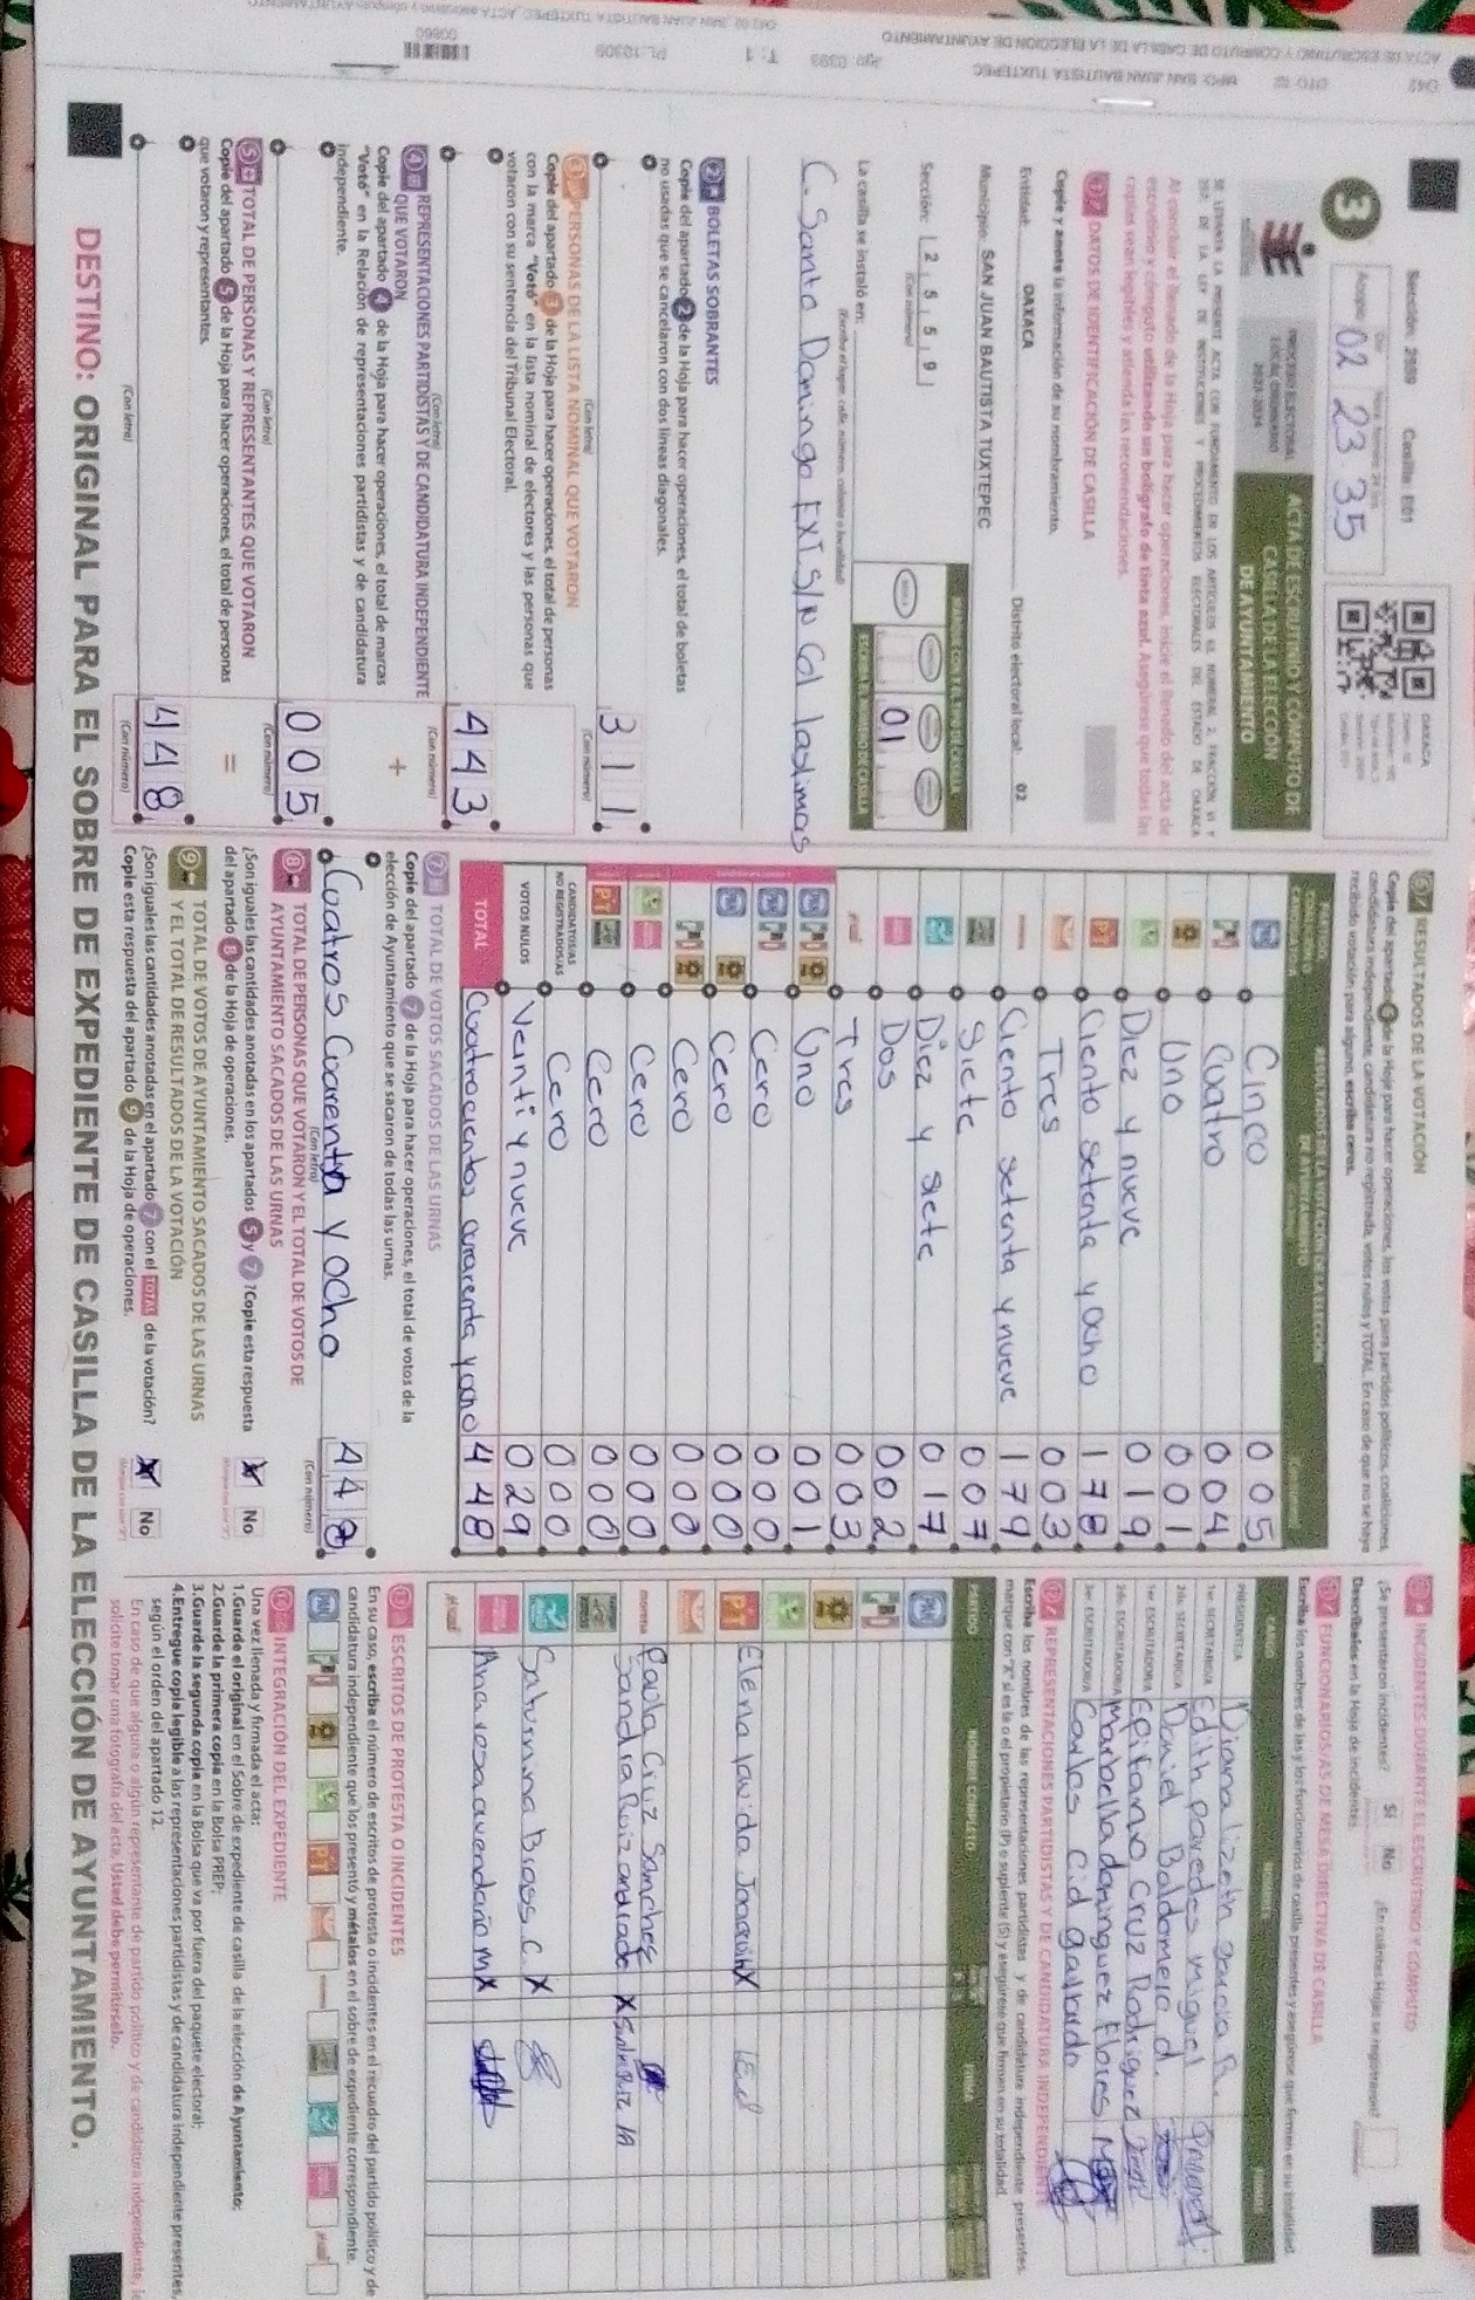 Sección: 2559 Casilla: E01
3
Acopio
02 23 35
PROCESO ELECTORAL
LOCAL ORDINARIO
2023-2024
ACTA DE ESCRUTINIO Y CÓMPUTO DE
CASILLA DE LA ELECCIÓN
DE AYUNTAMIENTO
Al concluir el llenado de la Hoja para hacer operaciones, inicie el llenado del acta de
escrutinio y cómputo utilizando un bolígrafo de tinta azul. Asegúrese que todas las
copias sean legibles y atienda las recomendaciones.
1 DATOS DE IDENTIFICACIÓN DE CASILLA
Copie y anote la información de su nombramiento.
Entidad: OAXACA Distrito electoral local: 02
Municipio: SAN JUAN BAUTISTA TUXTEPEC
Sección: 2 5 5 9
(Con número)
MARQUE CON X EL TIPO DE CASILLA
ESCRIBA EL NÚMERO DE CASILLA
01
La casilla se instaló en:
(Escriba el lugar: calle, número, colonia o localidad)
C. Santo Domingo EXT S/N Col lasLimas
2 BOLETAS SOBRANTES
Copie del apartado 2 de la Hoja para hacer operaciones, el total de boletas
no usadas que se cancelaron con dos líneas diagonales.
311
(Con letra) (Con número)
3 PERSONAS DE LA LISTA NOMINAL QUE VOTARON
Copie del apartado 3 de la Hoja para hacer operaciones, el total de personas
con la marca "Votó" en la lista nominal de electores y las personas que
votaron con su sentencia del Tribunal Electoral.
443
(Con letra) (Con número)
4 REPRESENTACIONES PARTIDISTAS Y DE CANDIDATURA INDEPENDIENTE
QUE VOTARON
+
Copie del apartado 4 de la Hoja para hacer operaciones, el total de marcas
"Votó" en la Relación de representaciones partidistas y de candidatura
independiente.
005
(Con letra) (Con número)
5 TOTAL DE PERSONAS Y REPRESENTANTES QUE VOTARON
=
Copie del apartado 5 de la Hoja para hacer operaciones, el total de personas
que votaron y representantes.
448
(Con letra) (Con número)
6 RESULTADOS DE LA VOTACIÓN
Copie del apartado 6 de la Hoja para hacer operaciones, los votos para partidos políticos, coaliciones,
candidatura independiente, candidatura no registrada, votos nulos y TOTAL. En caso de que no se haya
recibido votación para alguno, escriba ceros.
RESULTADOS DE LA VOTACIÓN DE LA ELECCIÓN
DE AYUNTAMIENTO
PAN Cinco 005
PRI Cuatro 004
Uno 001
Diez y nueve 019
PT Ciento setenta y ocho 178
Tres 003
Ciento setenta y nueve 179
Siete 007
Diez y siete 017
Dos 002
Tres 003
Uno 001
Cero 000
Cero 000
Cero 000
Cero 000
Cero 000
CANDIDATOS/AS
NO REGISTRADOS/AS Cero 000
VOTOS NULOS Veinti y nueve 029
TOTAL Cuatrocientos cuarenta y ocho 448
7 TOTAL DE VOTOS SACADOS DE LAS URNAS
Copie del apartado 7 de la Hoja para hacer operaciones, el total de votos de la
elección de Ayuntamiento que se sacaron de todas las urnas.
Cuatros Cuarenta y ocho 448
(Con letra) (Con número)
8 TOTAL DE PERSONAS QUE VOTARON Y EL TOTAL DE VOTOS DE
AYUNTAMIENTO SACADOS DE LAS URNAS
¿Son iguales las cantidades anotadas en los apartados 5 y 7? Copie esta respuesta
del apartado 8 de la Hoja de operaciones.
X No
9 TOTAL DE VOTOS DE AYUNTAMIENTO SACADOS DE LAS URNAS
Y EL TOTAL DE RESULTADOS DE LA VOTACIÓN
¿Son iguales las cantidades anotadas en el apartado 7 con el TOTAL de la votación?
Copie esta respuesta del apartado 9 de la Hoja de operaciones.
X No
INCIDENTES DURANTE EL ESCRUTINIO Y CÓMPUTO
¿Se presentaron incidentes? Sí No ¿En cuántas Hojas se registraron?
Descríbalos en la Hoja de incidentes.
FUNCIONARIOS/AS DE MESA DIRECTIVA DE CASILLA
Escriba los nombres de las y los funcionarios de casilla presentes y asegúrese que firmen en su totalidad.
CARGO NOMBRE FIRMA
PRESIDENTE/A Diana lizeth garcia R.
1er. SECRETARIO/A Edith paredes miguel
2do. SECRETARIO/A Daniel Baldomero d.
1er. ESCRUTADOR/A Epifanio Cruz Rodriguez
2do. ESCRUTADOR/A Marbella dominguez Flores
3er. ESCRUTADOR/A Carlos Cid gallardo
12 REPRESENTACIONES PARTIDISTAS Y DE CANDIDATURA INDEPENDIENTE
Escriba los nombres de las representaciones partidistas y de candidatura independiente presentes,
marque con "X" si es la o el propietario (P) o suplente (S) y asegúrese que firmen en su totalidad.
PARTIDO NOMBRE COMPLETO FIRMA
PAN
PRI
PT Elena lavida Joaquin X
morena Paola Cruz Sanchez
Sandra Ruiz andrade X
Saturnina Brass. C. X
Ana resa avendaño m X
ESCRITOS DE PROTESTA O INCIDENTES
En su caso, escriba el número de escritos de protesta o incidentes en el recuadro del partido político y de
candidatura independiente que los presentó y métalos en el sobre de expediente correspondiente.
INTEGRACIÓN DEL EXPEDIENTE
Una vez llenada y firmada el acta:
1.Guarde el original en el Sobre de expediente de casilla de la elección de Ayuntamiento;
2.Guarde la primera copia en la Bolsa PREP;
3.Guarde la segunda copia en la Bolsa que va por fuera del paquete electoral;
4.Entregue copia legible a las representaciones partidistas y de candidatura independiente presentes,
según el orden del apartado 12.
En caso de que alguna o algún representante de partido político y de candidatura independiente, le
solicite tomar una fotografía del acta, Usted debe permitírselo.
DESTINO: ORIGINAL PARA EL SOBRE DE EXPEDIENTE DE CASILLA DE LA ELECCIÓN DE AYUNTAMIENTO.